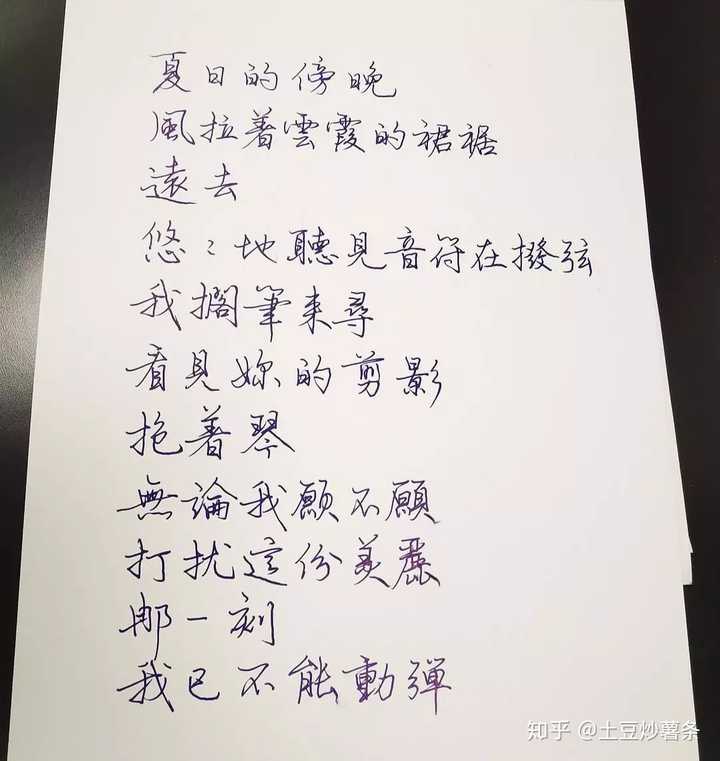 夏日的傍晚
風拉着雲霞的裙裾
遠去
悠:地聽見音符在撥弦
我擱筆来尋
看見妳的剪影
抱着琴
無論我願不願
打扰這份美麗
那一刻
我已不能動彈
知乎 @土豆炒薯条